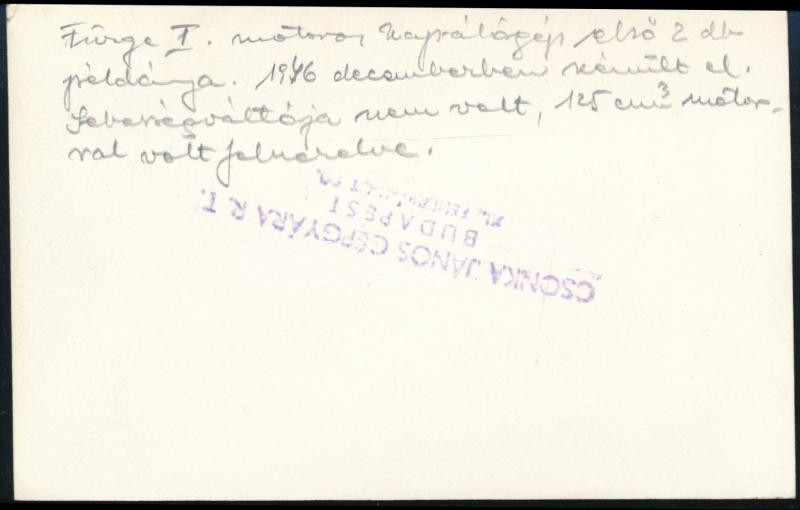 Fürge I. motoros kapálógép első 2 db
példánya. 1946 decemberben készült el.
Sebességváltója nem volt, 125 cm³ motor-
ral volt felszerelve.
CSONKA JÁNOS GÉPGYÁRA R.T.
BUDAPEST
XI., FEHÉRVÁRI-ÚT